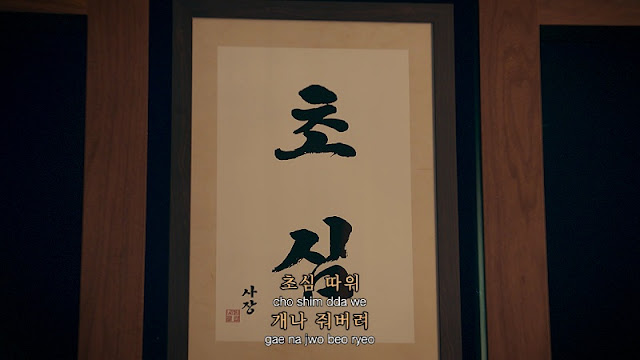 초
심
사장
초심 따위
cho shim dda we
개나 줘버려
gae na jwo beo ryeo